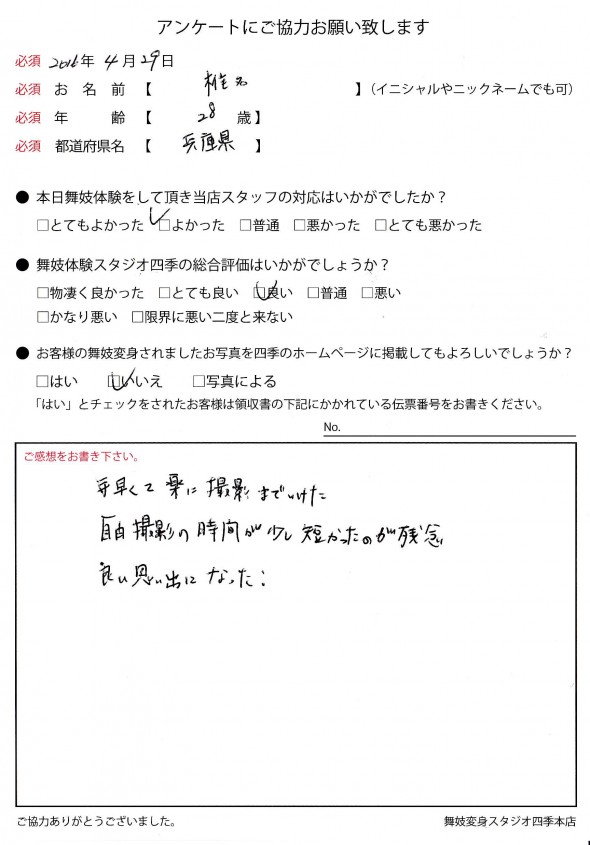 アンケートにご協力お願い致します
必須 2016年 4月29日
必須 お名前 【 椎名 】（イニシャルやニックネームでも可）
必須 年齢 【 28 歳】
必須 都道府県名 【 兵庫県 】
● 本日舞妓体験をして頂き当店スタッフの対応はいかがでしたか？
□とてもよかった □よかった □普通 □悪かった □とても悪かった
● 舞妓体験スタジオ四季の総合評価はいかがでしょうか？
□物凄く良かった □とても良い □良い □普通 □悪い
□かなり悪い □限界に悪い二度と来ない
● お客様の舞妓変身されましたお写真を四季のホームページに掲載してもよろしいでしょうか？
□はい □いいえ □写真による
「はい」とチェックをされたお客様は領収書の下記にかかれている伝票番号をお書きください。
No.
ご感想をお書き下さい。
手早くて楽に撮影までいけた
自由撮影の時間が少し短かったのが残念
良い思い出になった:
ご協力ありがとうございました。
舞妓変身スタジオ四季本店